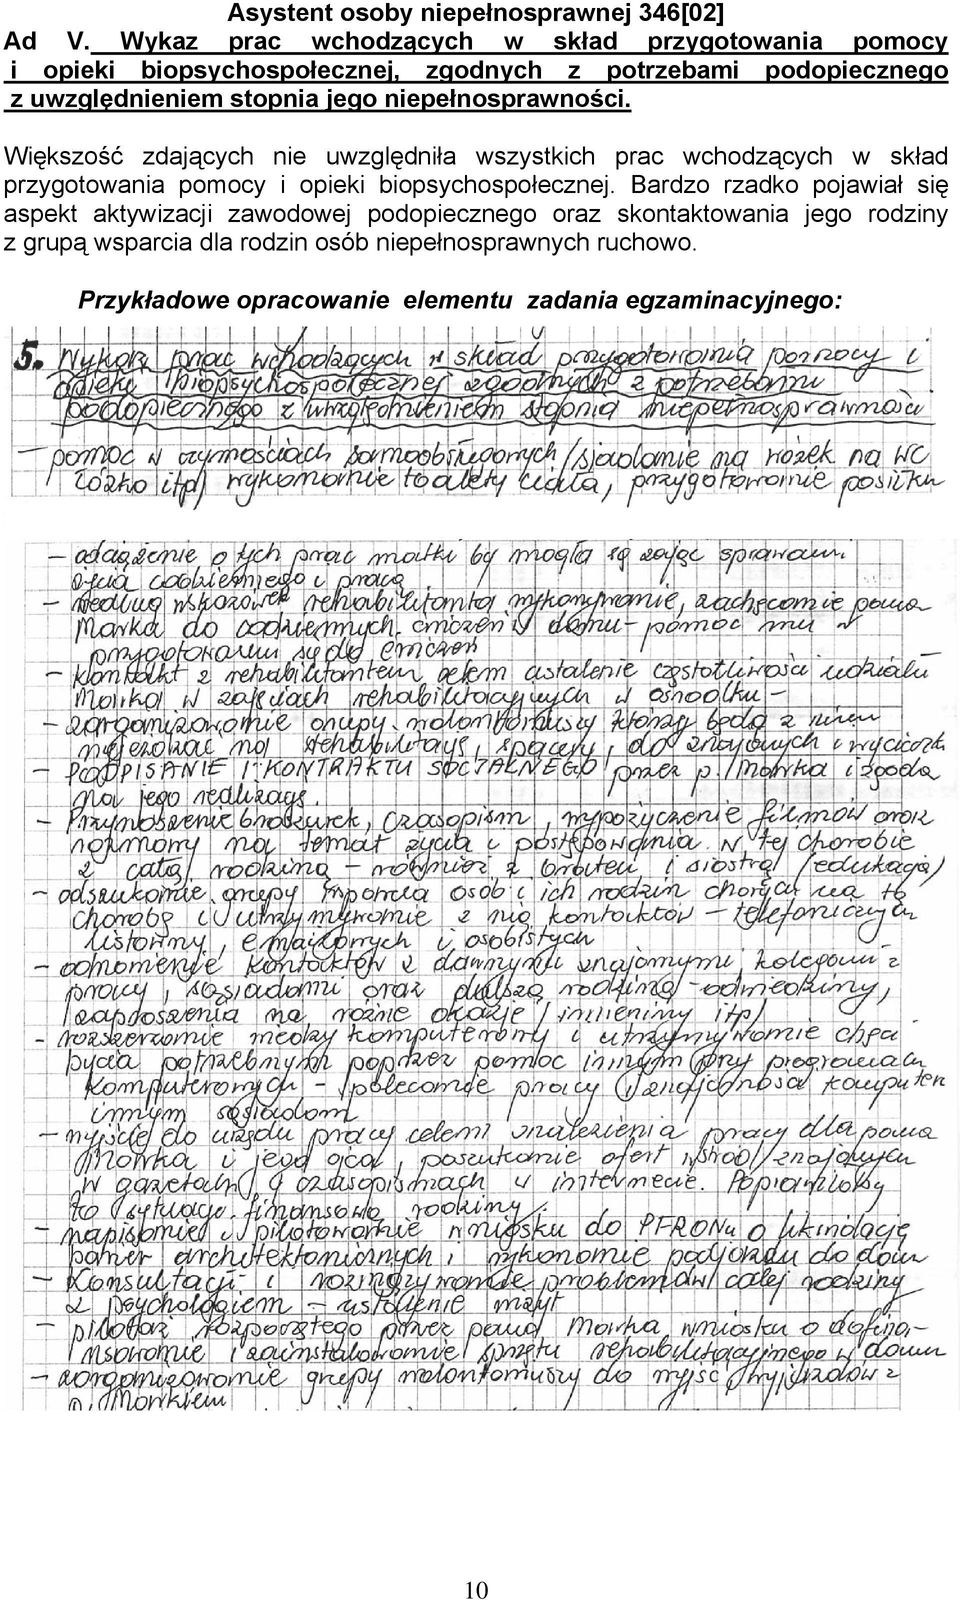 Asystent osoby niepełnosprawnej 346[02]
Ad V. Wykaz prac wchodzących w skład przygotowania pomocy
i opieki biopsychospołecznej, zgodnych z potrzebami podopiecznego
z uwzględnieniem stopnia jego niepełnosprawności.
Większość zdających nie uwzględniła wszystkich prac wchodzących w skład
przygotowania pomocy i opieki biopsychospołecznej. Bardzo rzadko pojawiał się
aspekt aktywizacji zawodowej podopiecznego oraz skontaktowania jego rodziny
z grupą wsparcia dla rodzin osób niepełnosprawnych ruchowo.
Przykładowe opracowanie elementu zadania egzaminacyjnego:
5. Wykaz prac wchodzących w skład przygotowania pomocy i
opieki biopsychospołecznej zgodnych z potrzebami
podopiecznego z uwzględnieniem stopnia niepełnosprawności
- pomoc w czynnościach samoobsługowych (siadanie na wózek na WC
łóżko itp) wykonanie toalety ciała, przygotowanie posiłku
- odciążenie o tych prac matki by mogła się zająć sprawami
życia codziennego i pracą
- według wskazówek rehabilitanta wykonywanie, zachęcanie pana
Marka do codziennych ćwiczeń w domu - pomoc mu w
przygotowaniu się do ćwiczeń
- kontakt z rehabilitantem celem ustalenie częstotliwości udziału
Marka w zajęciach rehabilitacyjnych w ośrodku -
- zorganizowanie grupy wolontariuszy którzy będą z nim
wyjeżdżać na rehabilitację, spacery, do znajomych i wycieczk
- PODPISANIE KONTRAKTU SOCJALNEGO przez p. Marka i zgoda
na jego realizację.
- Przynoszenie broszurek, czasopism, wypożyczenie filmów oraz
rozmowy na temat życia i postępowania w tej chorobie
z całą rodziną - również z bratem i siostrą (edukacja)
- odszukanie grupy wsparcia osób i ich rodzin chorych na tę
chorobę i utrzymywanie z nią kontaktów - telefonicznych
listowny, emailowych i osobistych
- odnowienie kontaktów z dawnymi znajomymi, kolegami z
pracy, sąsiadami oraz dalszą rodziną - odwiedziny,
zaproszenia na różne okazje (imieniny itp)
- rozszerzenie wiedzy komputerowy i utrzymywanie chęci
bycia potrzebnym poprzez pomoc innym przy programach
komputerowych - polecanie pracy i znajomości komputera
innym sąsiadom
- wyjście do urzędu pracy celem znalezienia pracy dla pana
Marka i jego ojca, poszukanie ofert wśród znajomych
w gazetach, czasopismach i internecie. Poprawiłoby
to sytuację finansową rodziny.
- napisanie i pilotowanie wniosku do PFRONu o likwidację
barier architektonicznych i wykonanie podjazdu do domu
- Konsultacji i rozwiązywanie problemów całej rodziny
z psychologiem - ustalenie wizyt
- pilotaż rozpoczętego przez pana Marka wniosku o dofina-
nsowanie i zainstalowanie sprzętu rehabilitacyjnego w domu
- zorganizowanie grupy wolontariuszy do wyjść wyjazdów z
p. Markiem
10